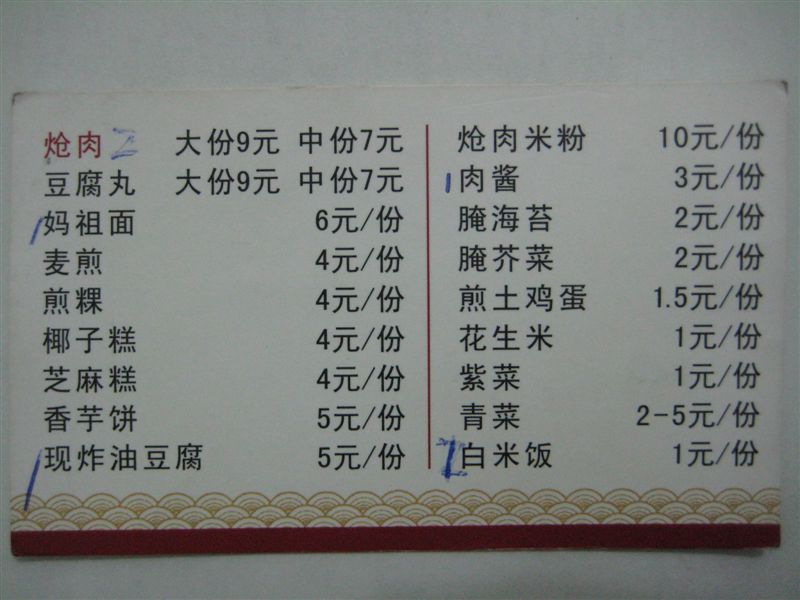 炝肉 2 大份9元 中份7元
豆腐丸 大份9元 中份7元
1 妈祖面 6元/份
麦煎 4元/份
煎粿 4元/份
椰子糕 4元/份
芝麻糕 4元/份
香芋饼 5元/份
1 现炸油豆腐 5元/份
炝肉米粉 10元/份
1 肉酱 3元/份
腌海苔 2元/份
腌芥菜 2元/份
煎土鸡蛋 1.5元/份
花生米 1元/份
紫菜 1元/份
青菜 2-5元/份
2 白米饭 1元/份